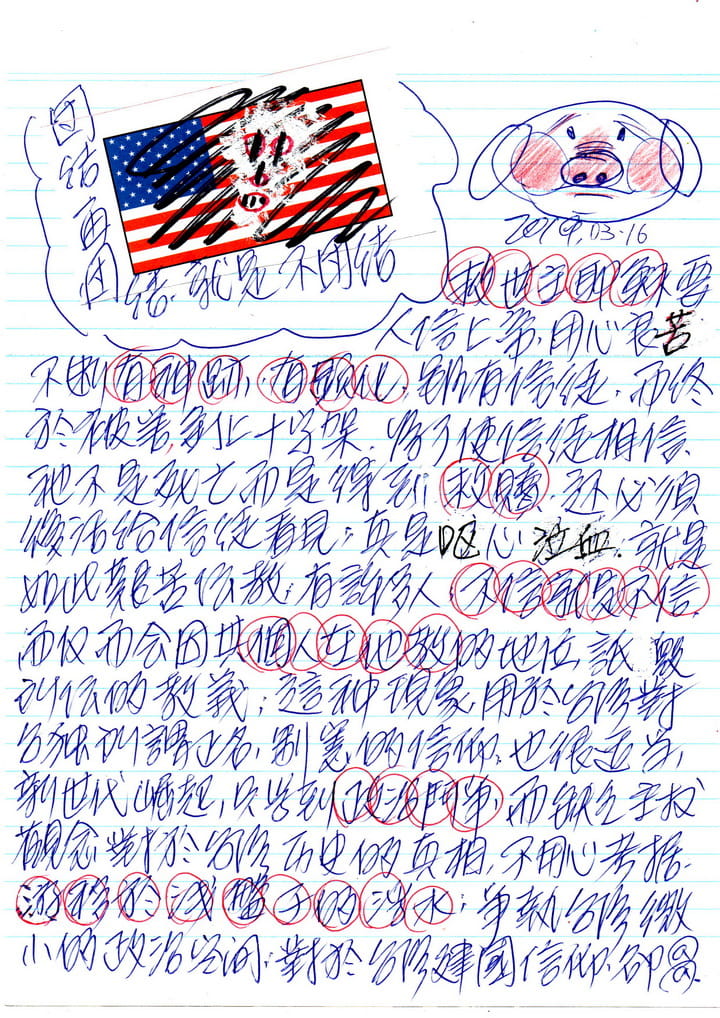 团结再团
结.就是不团结
2019.03-16
救世主耶穌要
人信上帝.用心良苦
不断有神跡,有感化,則有信徒.而终
於被害,釘上十字架.為了使信徒相信
祂不是死亡而是得到救贖.还必須
復活给信徒看見;真是呕心泣血.就是
如此艱苦伝教,有許多人,不信就是不信
而仅而会因其個人在他教的地位,詆毀
別伝的教義;這种現象,用於台湾對
台独所謂正名,制憲,的信仰.也很适当,
新世代崛起,只学到政治鬥争,而缺乏主权
觀念.對於台湾历史的真相,不用心考据.
游移於浅盤子的浅水;争執台湾微
小的政治空间.對於台湾建國信仰.卻